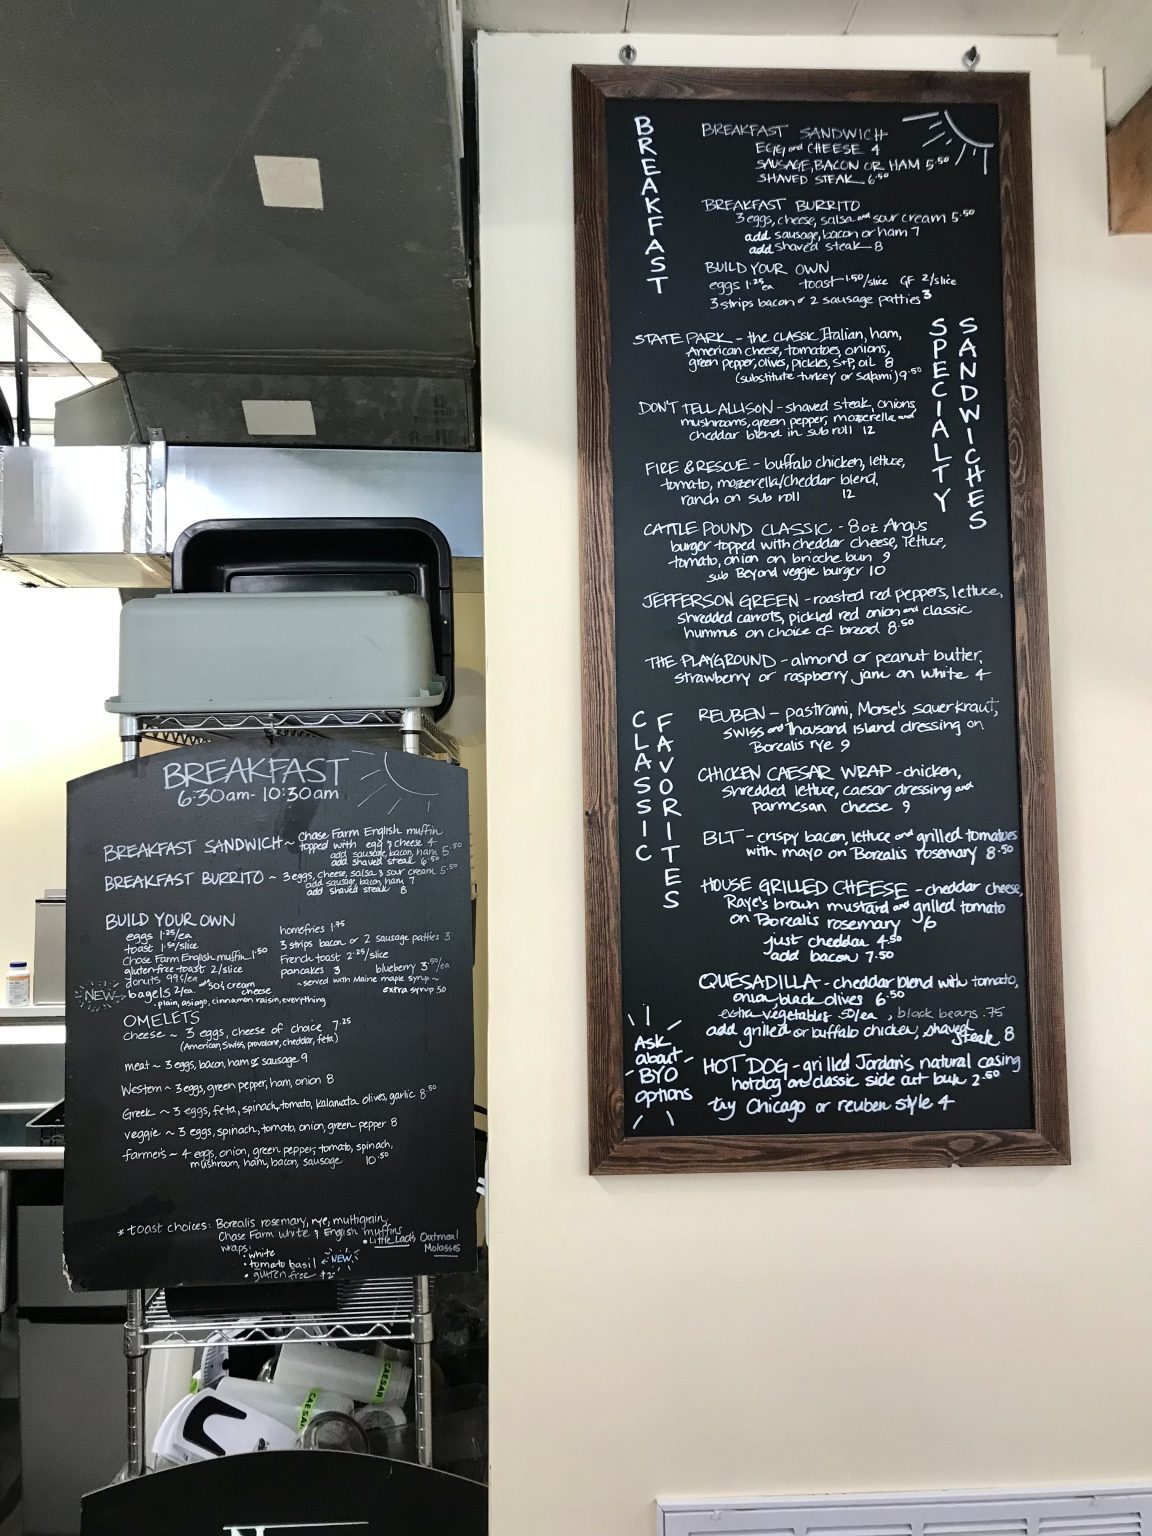 BREAKFAST
6:30am- 10:30am
BREAKFAST SANDWICH ~ Chase Farm English muffin
topped with egg & cheese 4
add sausage, bacon, ham 5.50
add shaved steak 6.50
BREAKFAST BURRITO ~ 3 eggs, cheese, salsa & sour cream 5.50
add sausage, bacon, ham 7
add shaved steak 8
BUILD YOUR OWN
eggs 1.25/ea
toast 1.50/slice
Chase Farm English muffin 1.50
gluten-free toast 2/slice
donuts 99¢/ea
NEW bagels 2/ea. 50¢ cream cheese
plain, asiago, cinnamon raisin, everything
homefries 1.75
3 strips bacon or 2 sausage patties 3
French toast 2.25/slice
pancakes 3 blueberry 3.50/ea
~ served with Maine maple syrup ~
extra syrup .50
OMELETS
cheese ~ 3 eggs, cheese of choice 7.25
(American, Swiss, provolone, cheddar, feta)
meat ~ 3 eggs, bacon, ham & sausage 9
Western ~ 3 eggs, green pepper, ham, onion 8
Greek ~ 3 eggs, feta, spinach, tomato, kalamata olives, garlic 8.50
veggie ~ 3 eggs, spinach, tomato, onion, green pepper 8
farmer's ~ 4 eggs, onion, green pepper, tomato, spinach,
mushroom, ham, bacon, sausage 10.50
* toast choices: Borealis rosemary, rye, multigrain,
Chase Farm white & English muffins
• Little Lad's Oatmeal
Molasses
wraps:
• white
• tomato basil ← NEW
• gluten free +2
CAESAR
CAESAR
BREAKFAST
BREAKFAST SANDWICH
EGG and CHEESE 4
SAUSAGE, BACON OR HAM 5.50
SHAVED STEAK 6.50
BREAKFAST BURRITO
3 eggs, cheese, salsa and sour cream 5.50
add sausage, bacon or ham 7
add shaved steak 8
BUILD YOUR OWN
eggs 1.25ea toast 1.50/slice GF 2/slice
3 strips bacon or 2 sausage patties 3
SPECIALTY SANDWICHES
STATE PARK - the CLASSIC Italian, ham,
American cheese, tomatoes, onions,
green pepper, olives, pickles, S+P, oil 8
(substitute turkey or salami) 9.50
DON'T TELL ALLISON - shaved steak, onions
mushrooms, green pepper, mozzerella and
cheddar blend in sub roll 12
FIRE & RESCUE - buffalo chicken, lettuce,
tomato, mozzerella/cheddar blend,
ranch on sub roll 12
CATTLE POUND CLASSIC - 8oz Angus
burger topped with cheddar cheese, lettuce,
tomato, onion on brioche bun 9
sub Beyond veggie burger 10
JEFFERSON GREEN - roasted red peppers, lettuce,
shredded carrots, pickled red onion and classic
hummus on choice of bread 8.50
THE PLAYGROUND - almond or peanut butter,
strawberry or raspberry jam on white 4
CLASSIC FAVORITES
REUBEN - pastrami, Morse's sauerkraut,
swiss and Thousand Island dressing on
Borealis rye 9
CHICKEN CAESAR WRAP - chicken,
shredded lettuce, caesar dressing and
parmesan cheese 9
BLT - crispy bacon, lettuce and grilled tomatoes
with mayo on Borealis rosemary 8.50
HOUSE GRILLED CHEESE - cheddar cheese,
Raye's brown mustard and grilled tomato
on Borealis rosemary 6
just cheddar 4.50
add bacon 7.50
QUESADILLA - cheddar blend with tomato,
onion, black olives 6.50
extra vegetables .50/ea, black beans .75
add grilled or buffalo chicken, shaved
steak 8
HOT DOG - grilled Jordan's natural casing
hotdog on classic side cut bun 2.50
try Chicago or reuben style 4
Ask
about
BYO
options